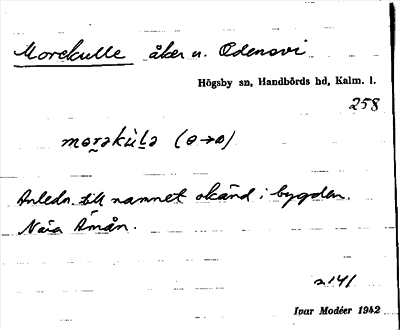 Morekulle åker u. Odensvi
Högsby sn, Handbörds hd, Kalm. l.
258
Anledn. till namnet okänd i bygden.
Nära Åmån.
s 141
Ivar Modéer 1942